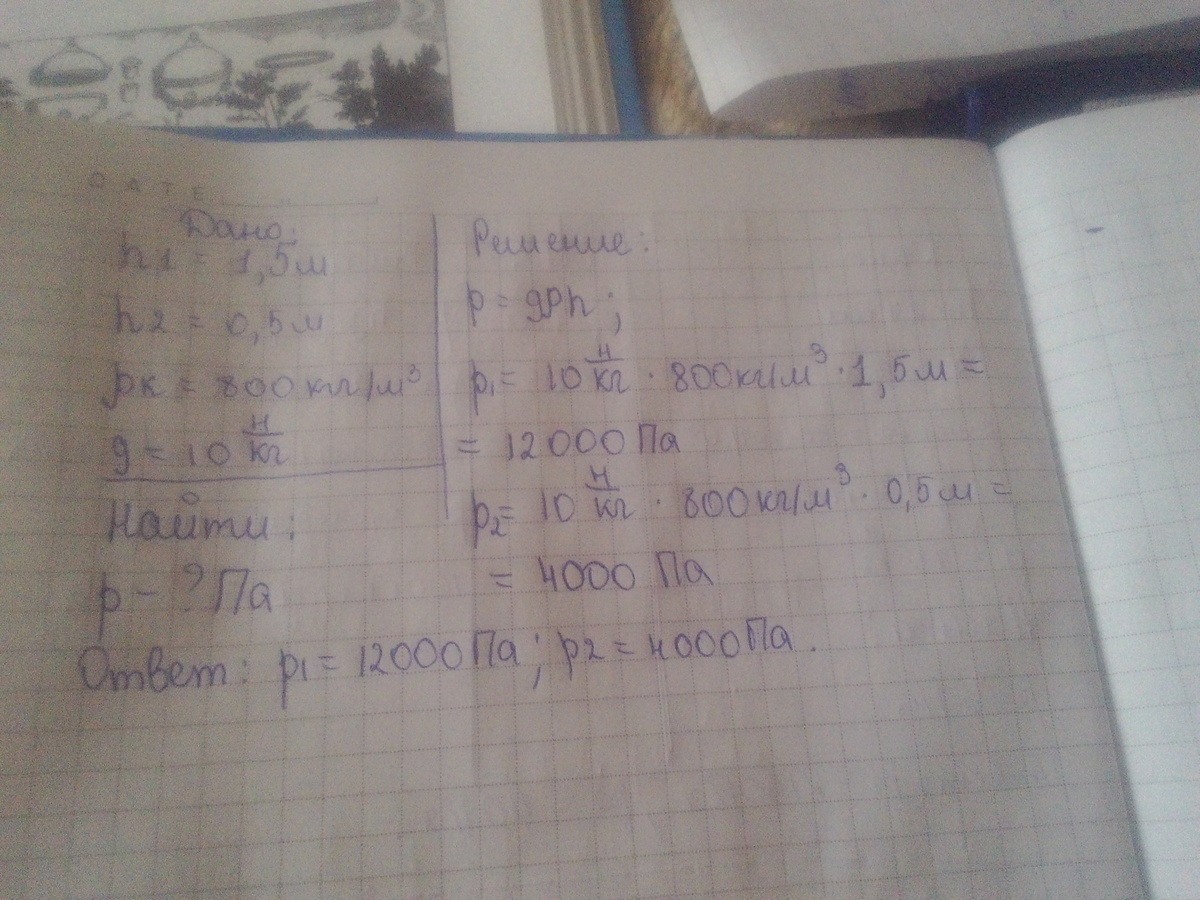 DATE
Дано:
h1 = 1,5м
h2 = 0,5м
pк = 800 кг/м³
g = 10 Н/кг
Найти:
p - ? Па
Решение:
p = gρh;
p₁ = 10 Н/кг · 800кг/м³ · 1,5м =
= 12000 Па
p₂ = 10 Н/кг · 800кг/м³ · 0,5м =
= 4000 Па
Ответ: p₁ = 12000Па; p2 = 4000Па.